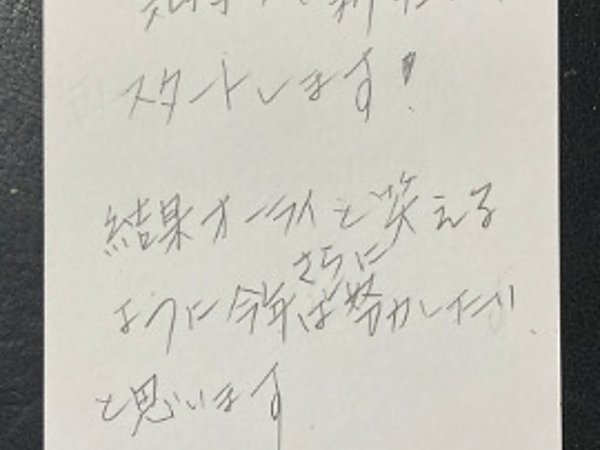 スタートします!
結果オーライと笑える
さらに
ように今年は努力したい
と思います